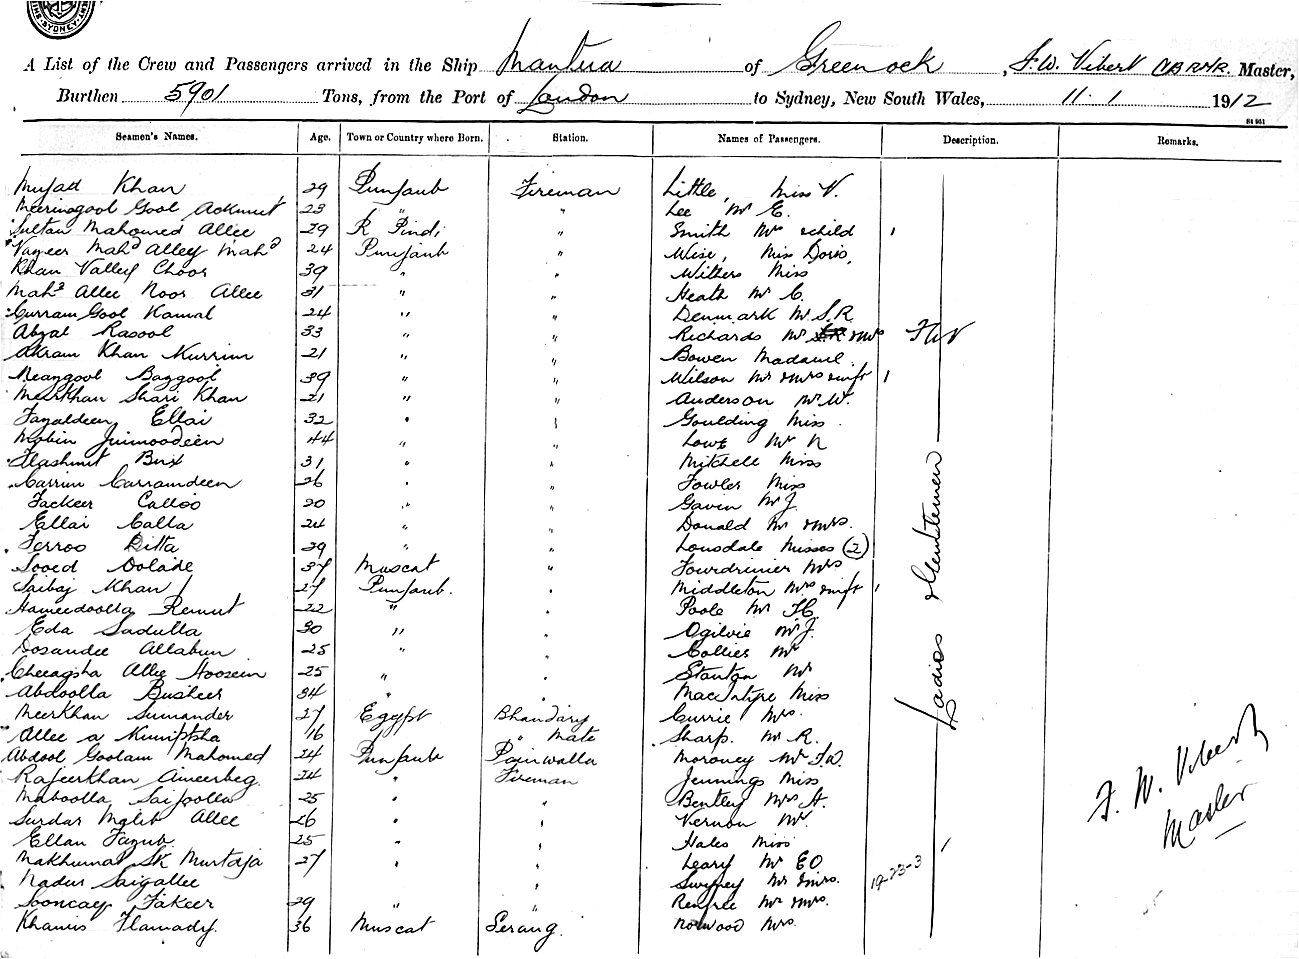 SYDNEY
A List of the Crew and Passengers arrived in the Ship Mantua of Greenock, F.W. Vibert Master,
Burthen 5901 Tons, from the Port of London to Sydney, New South Wales, 11.1 1912
Seamen's Names. Age. Town or Country where Born. Station. Names of Passengers. Description. Remarks.
Khan 29 Punjaub Fireman Little, Miss V.
Meeringool Gool 23 " " Lee Mr E.
Sultan Mahomed Allee 29 R Pindi " Smith Mrs & child 1
Mahd Alley Mahd 24 Punjaub " Wise, Miss Doris,
Khan Valley Choor 39 " " Withers Miss
Mahd Allee Noor Allee 31 " " Heath Mr C.
Curram Gool Kamal 24 " " Denmark Mr S.R.
Abzal Rasool 33 " " Richards Mr & Mrs
Akram Khan Kurrim 21 " " Bowen Madame
Meangool Bazgool 39 " " Wilson Mr & Mrs & inft 1
Meerkhan Shari Khan 21 " " Anderson Mr W.
Fazaldeen Ellai 32 " " Goulding Miss
Mobin 44 " " Lowe Mr N
Hashmut Bux 31 " " Mitchell Miss
Carrim Carramdeen 26 " " Fowler Miss
Fackeer Calloo 20 " " Gavin Mr J.
Ellai Calla 24 " " Donald Mr & Mrs.
Ferroo Ditta 29 " " Lonsdale Misses (2)
Sooed Dolade 37 Muscat " Fourdrinier Mrs
Saibaj Khan 27 Punjaub. " Middleton Mrs & inft 1
Hameedoolla Remut 22 " " Poole Mr
Eda Sadulla 30 " " Ogilvie Mr J.
Dosandee Allabux 25 " " Collier Mr
Cheeagsha Allie Hoosein 25 " " Stanton Mr
Abdoolla Busheer 34 " " MacIntyre Miss
Meerkhan Sumander 27 Egypt Bhandary Currie Mrs.
Allee a 16 " Mate Sharp. Mr R.
Abdool Goolam Mahomed 24 Punjaub Painwalla Moroney Mr F.W.
Rajeerkhan Ameerbeg 24 " Fireman Jennings Miss
Maboolla Saifoolla 25 " " Bentley Mrs H.
Surdar Allee 26 " " Vernon Mr.
Ellan 25 " " Hales Miss
Makhumad Sk Murtaja 27 " " Leary Mr EO
Nadur Saigallee " Mr & Mrs.
Sooncaey Fakeer 29 " " Renfree Mr & Mrs.
Khamis Hamady. 36 Muscat Serang. Norwood Mrs.
Ladies & Gentlemen
19-23-3
F. W. Vibert
Master